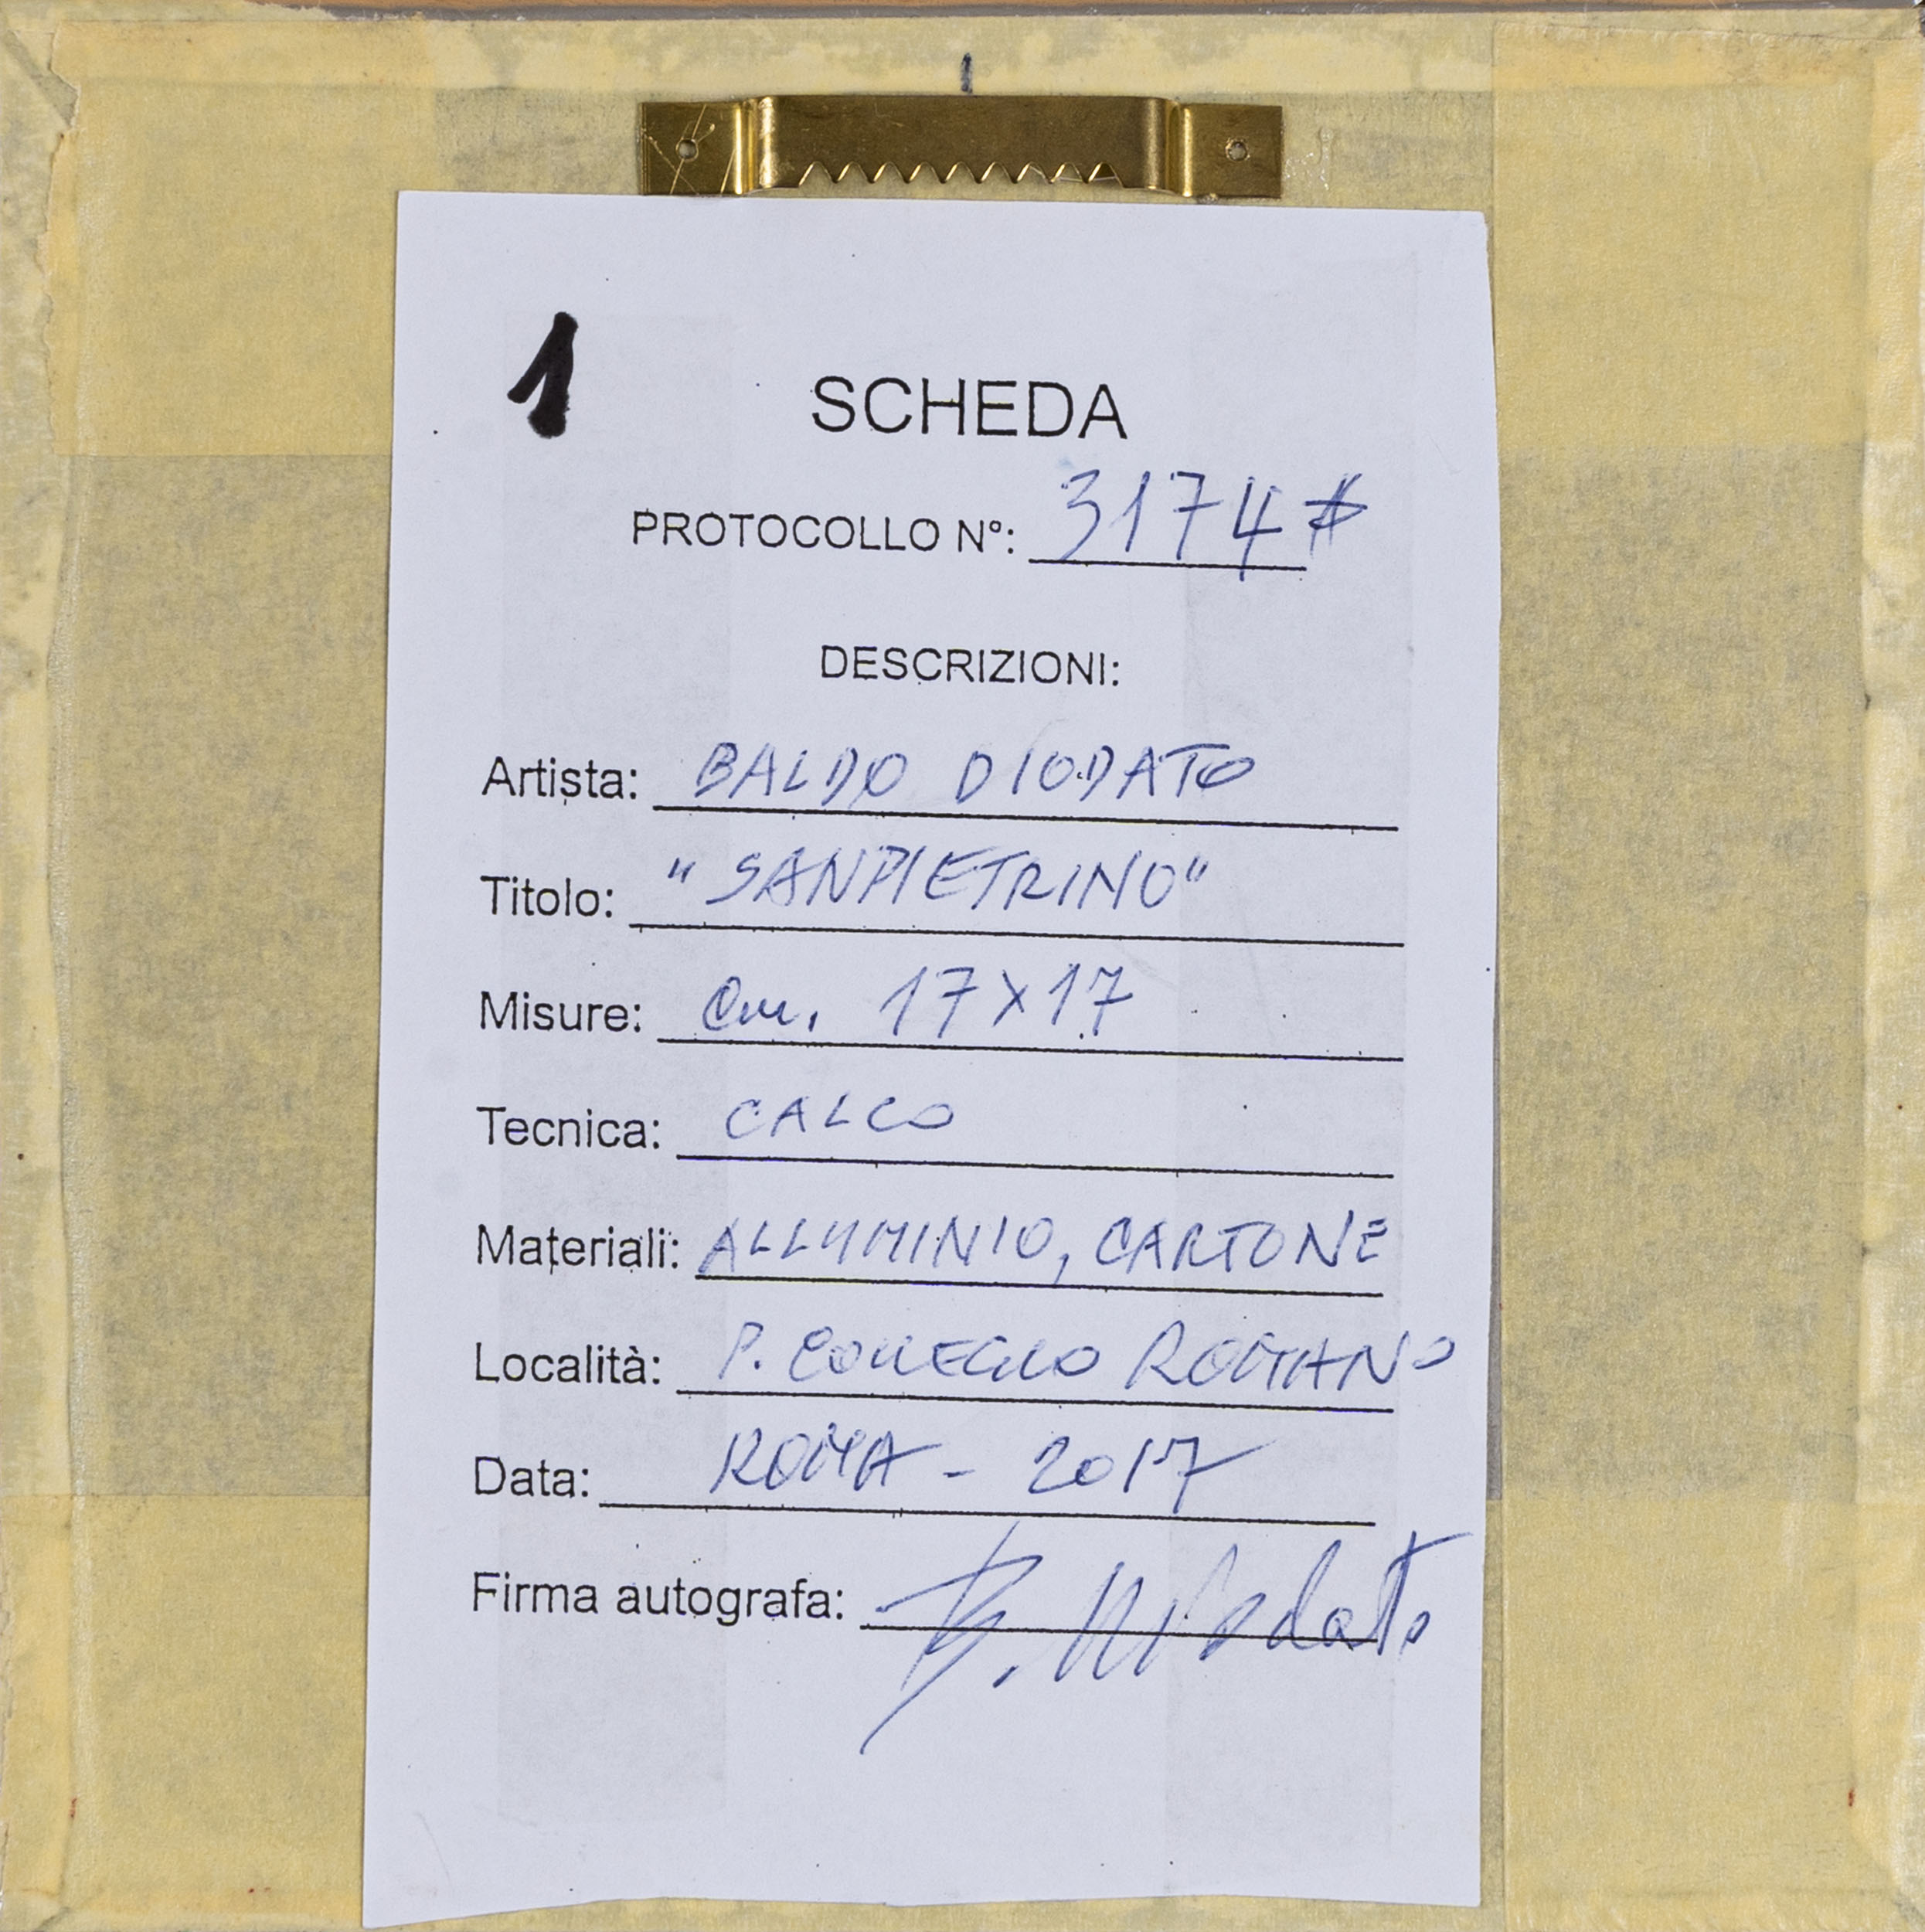 1
SCHEDA
PROTOCOLLO N°: 3174 #
DESCRIZIONI:
Artista: BALDO DIODATO
Titolo: "SANPIETRINO"
Misure: Cm. 17X17
Tecnica: CALCO
Materiali: ALLUMINIO, CARTONE
Località: P. COLLEGIO ROMANO
Data: ROMA - 2017
Firma autografa: B. Diodato